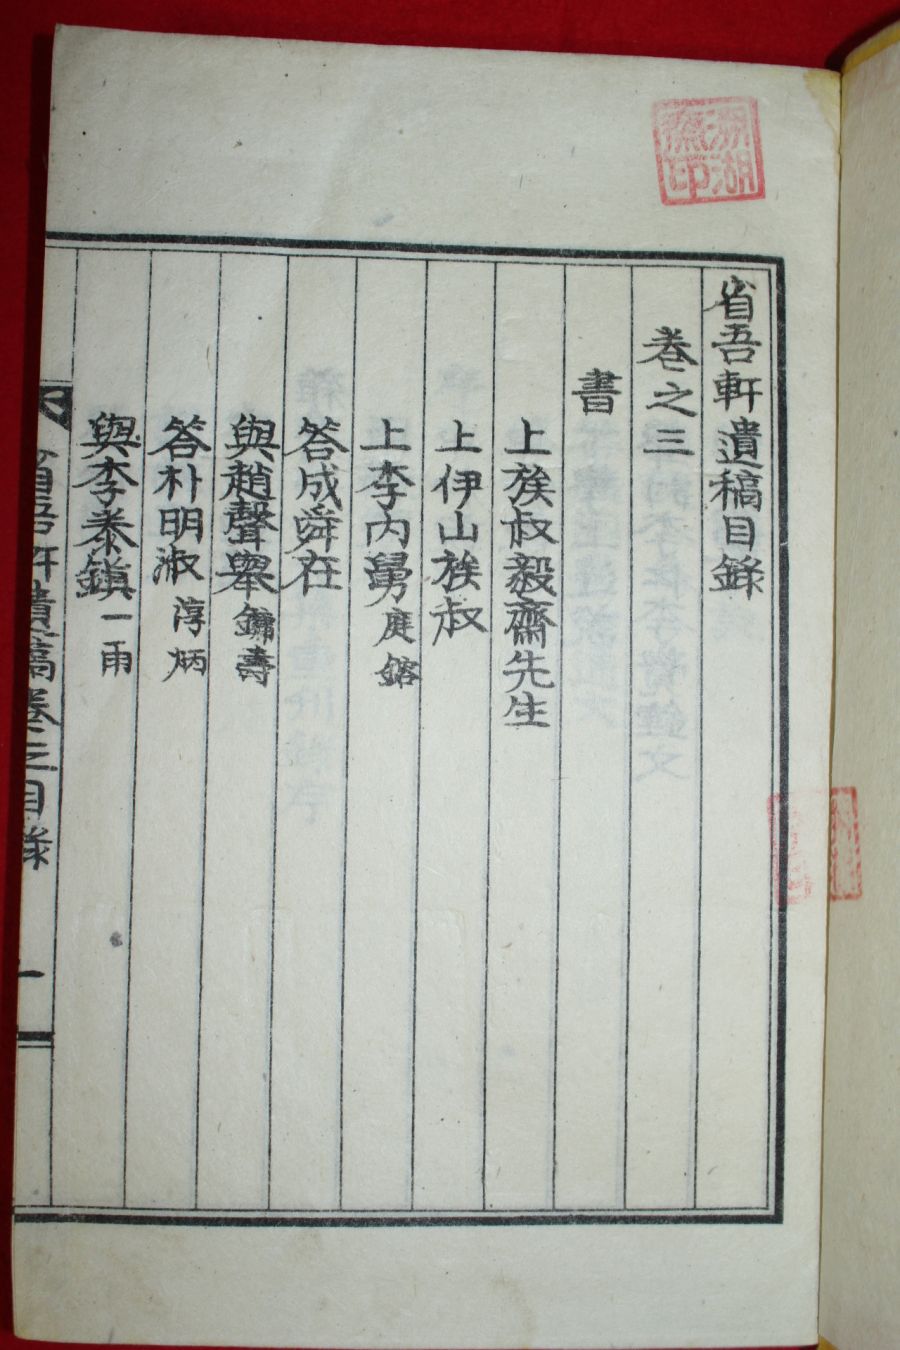 省吾軒遺稿目錄
卷之三
書
上族叔毅齋先生
上伊山族叔
上李內舅 庭鎔
答成舜在
與趙聲舉 鏞壽
答朴明淑 淳炳
與李泰鎭 一雨
省吾軒遺稿卷之目錄
一